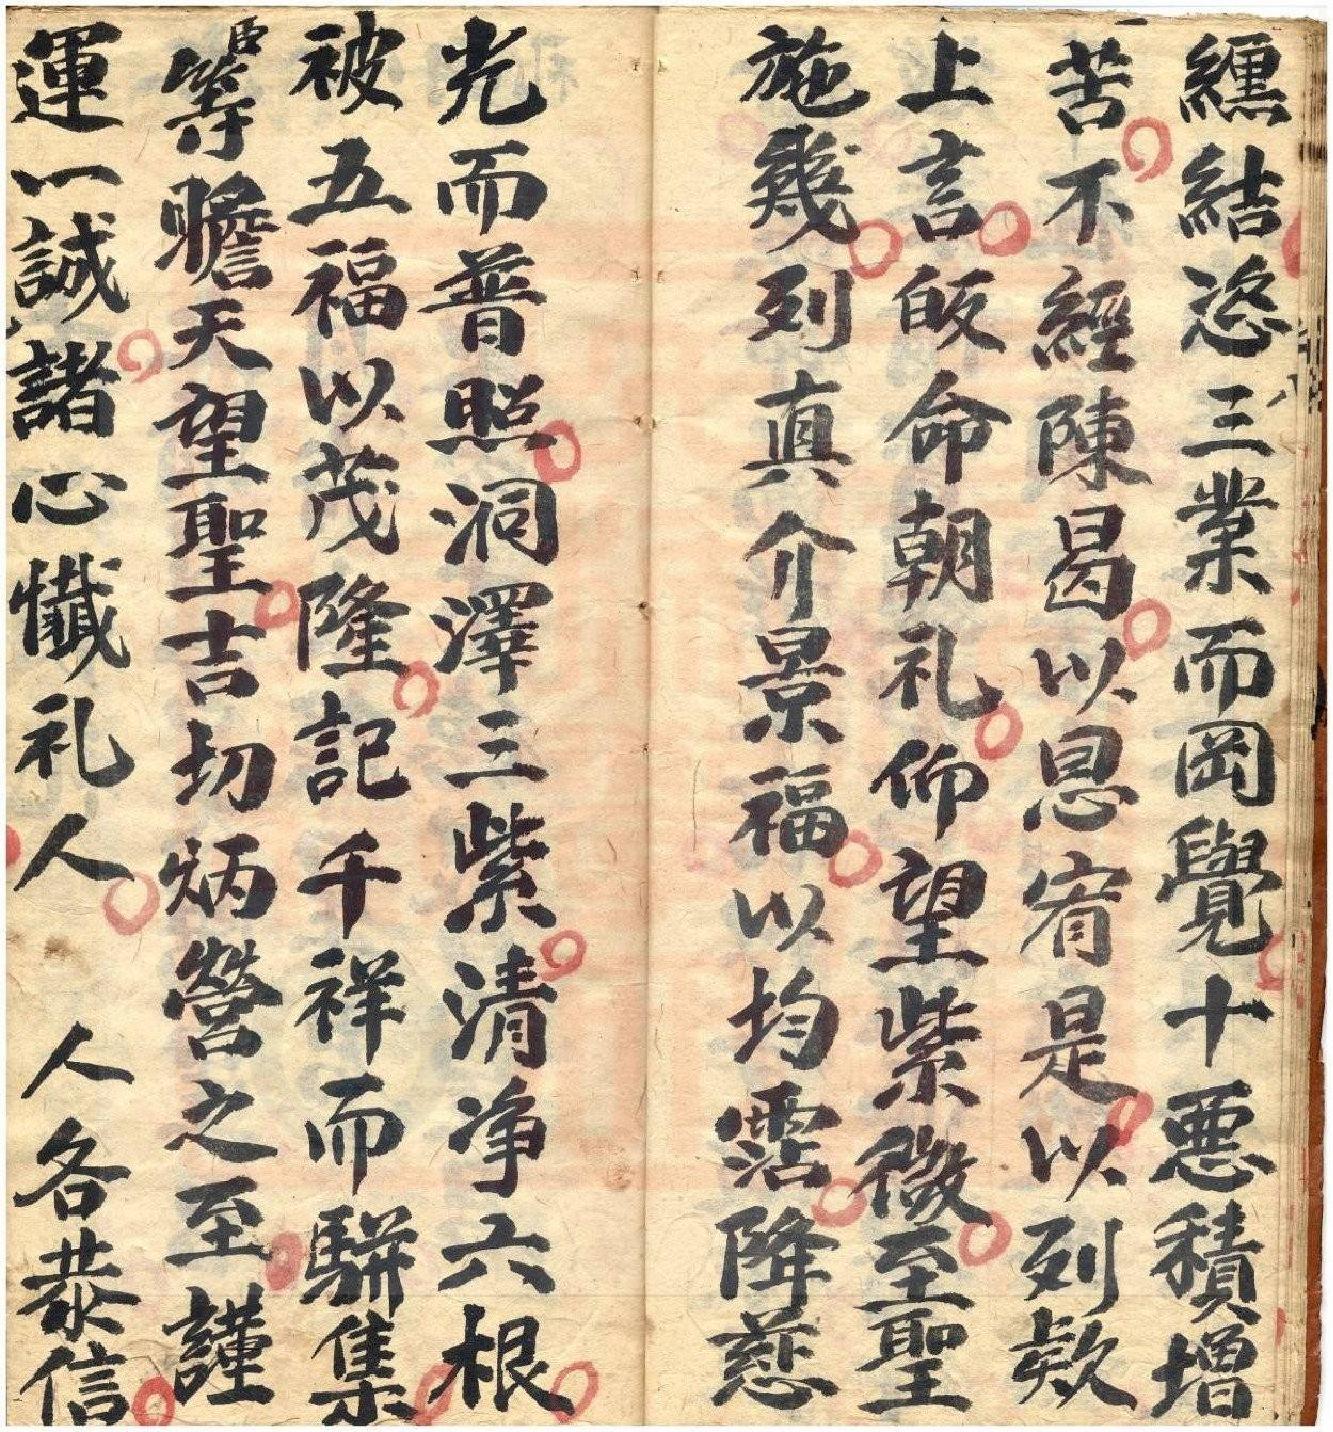 纏結恣三業而岡覺十惡積增
苦不經陳曷以恩宥是以列欵
上言皈命朝礼仰望紫微至聖
施幾列真介景福以均霑降慈
光而普照洞澤三紫清净六根
被五福以茂隆記千祥而駢集
臣等瞻天望聖吉切炳營之至謹
運一誠諸心懺礼人 人各恭信